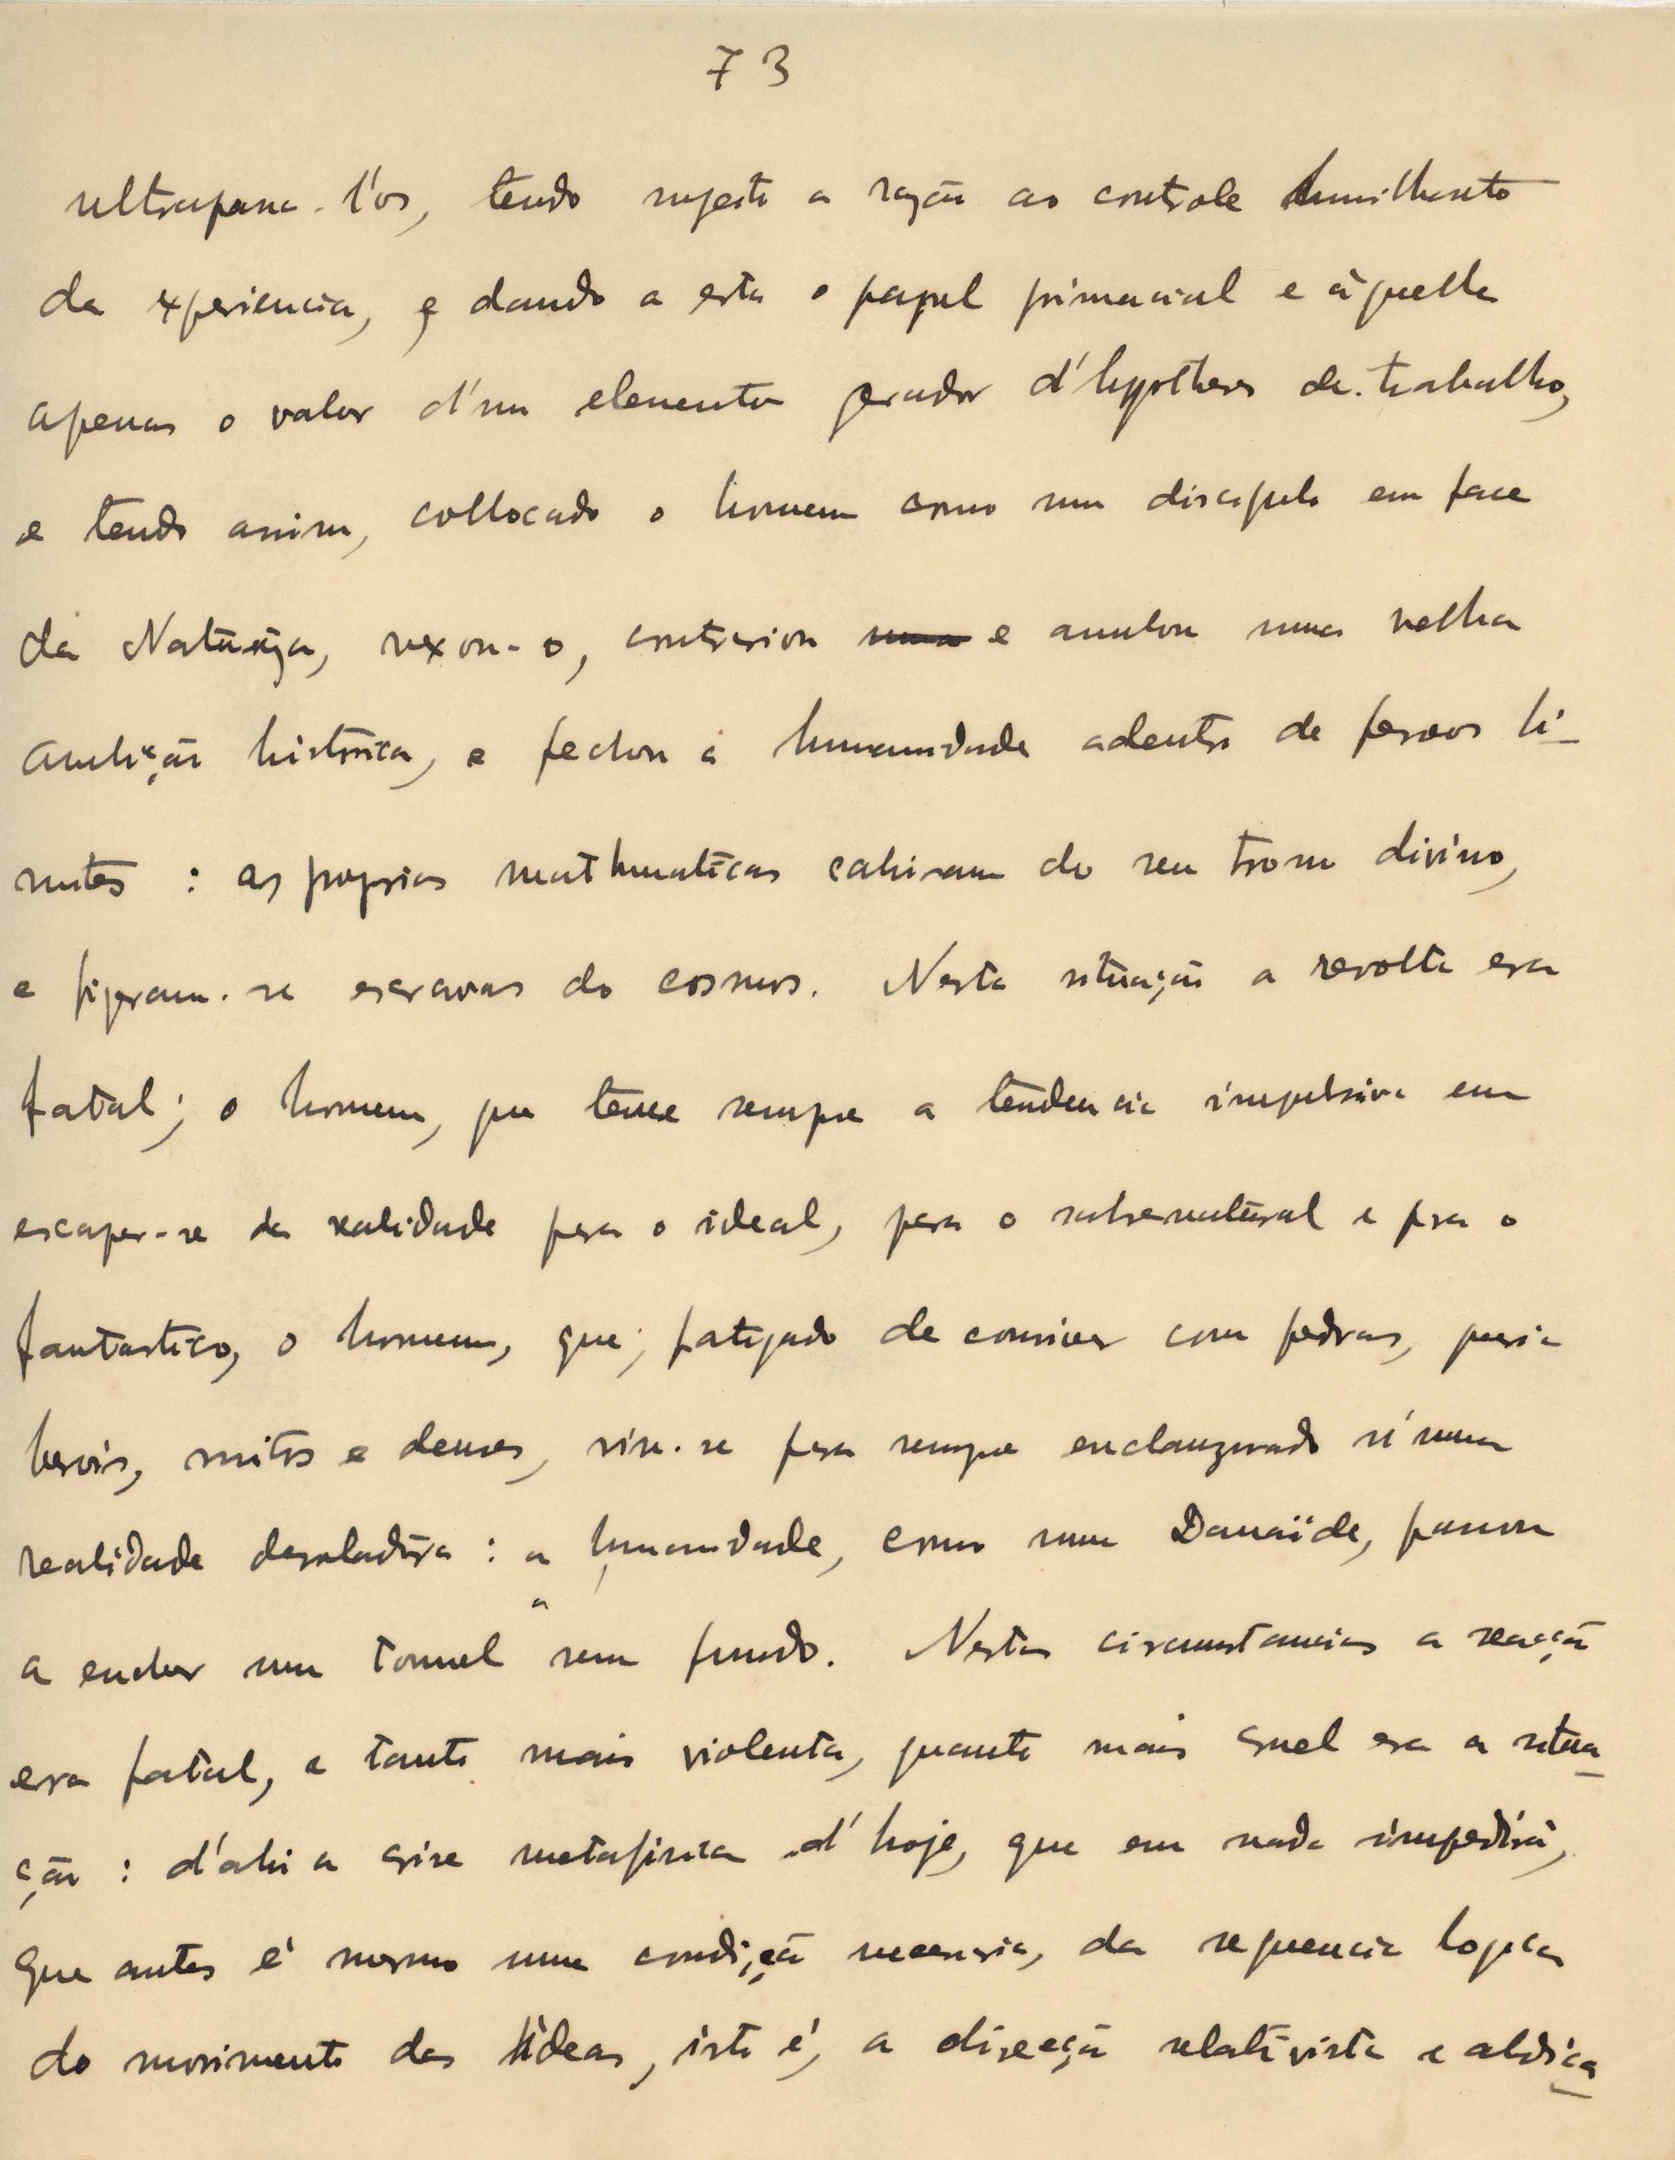 73
ultrapassa-l'os, tendo sujeito a razão ao controle humilhante
da experiencia, e dando a esta o papel primacial e áquella
apenas o valor d'um elemento gerador d'hypotheses de trabalho,
e tendo assim, collocado o homem como um discipulo em face
da Natureza, vexou-o, contrariou e annulou uma velha
ambição histórica, e fechou a humanidade adentro de ferreos li-
mites : as proprias mathematicas cahiram do seu trono divino,
e fizeram-se escravas do cosmos. Nesta situação a revolta era
fatal; o homem, que teve sempre a tendencia impulsiva em
escapar-se da realidade para o ideal, para o sobrenatural e para o
fantastico, o homem, que, fatigado de conviver com pedras, queria
herois, mitos e deuses, viu-se para sempre enclausurado n'uma
realidade desoladora : a humanidade, como uma Danaïde, passou
a encher um tonnel sem fundo. Nestas circumstancias a reacção
era fatal, e tanto mais violenta, quanto mais cruel era a situa-
ção : d'ahi a crise metafisica d'hoje, que em nada impedirá,
que antes é mesmo uma condição necessaria, da sequencia logica
do movimento das ideas, isto é, a direcção relativista e abdica-